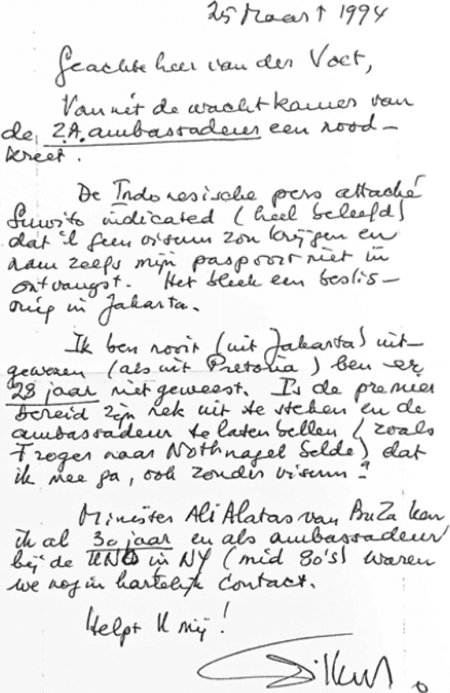 25 Maart 1994
Geachte heer van der Voet,
Vanuit de wachtkamer van
de Z.A. ambassadeur een nood-
kreet.
De Indonesische pers attaché
Suwito indicated (heel beleefd)
dat ik geen visum zou krijgen en
nam zelfs mijn paspoort niet in
ontvangst. Het bleek een beslis-
sing in Jakarta.
Ik ben nooit (uit Jakarta) uit-
gewezen (als uit Pretoria) ben er
28 jaar niet geweest. Is de premier
bereid zijn nek uit te steken en de
ambassadeur te laten bellen (zoals
Froger naar Nothnagel belde) dat
ik mee ga, ook zonder visum?
Minister Ali Alatas van BuZa ken
ik al 30 jaar en als ambassadeur
bij de UNO in NY (mid 80's) waren
we nog in hartelijk contact.
Helpt U mij!